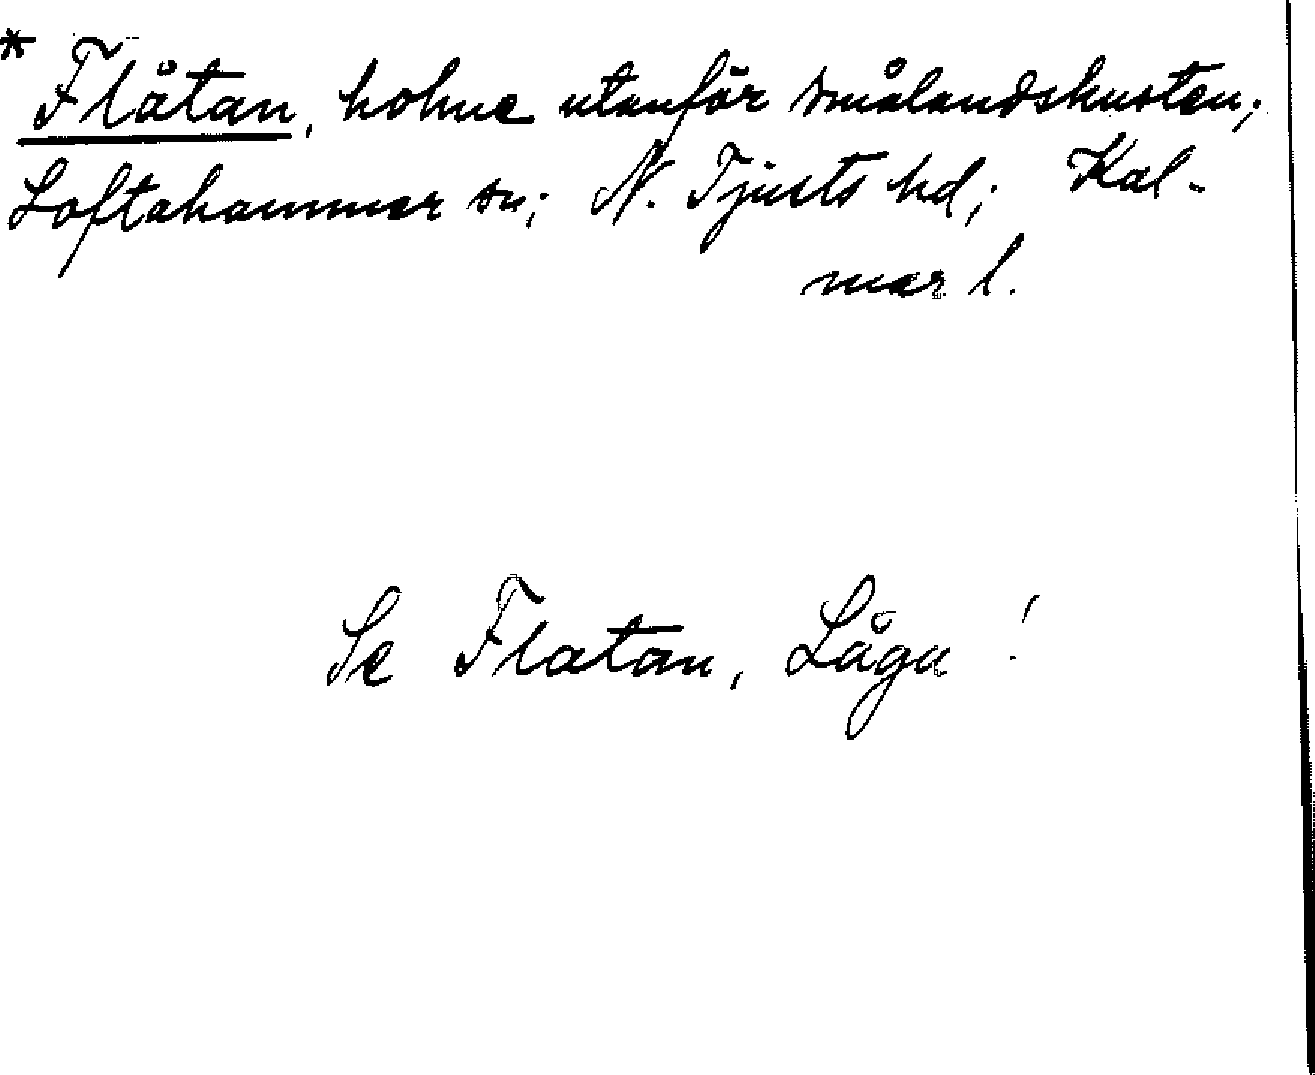 * Flåtan, holme utanför smålandskusten;
Loftahammar sn; N. Tjusts hd; Kal-
mar l.
Se Flatan, Låga !